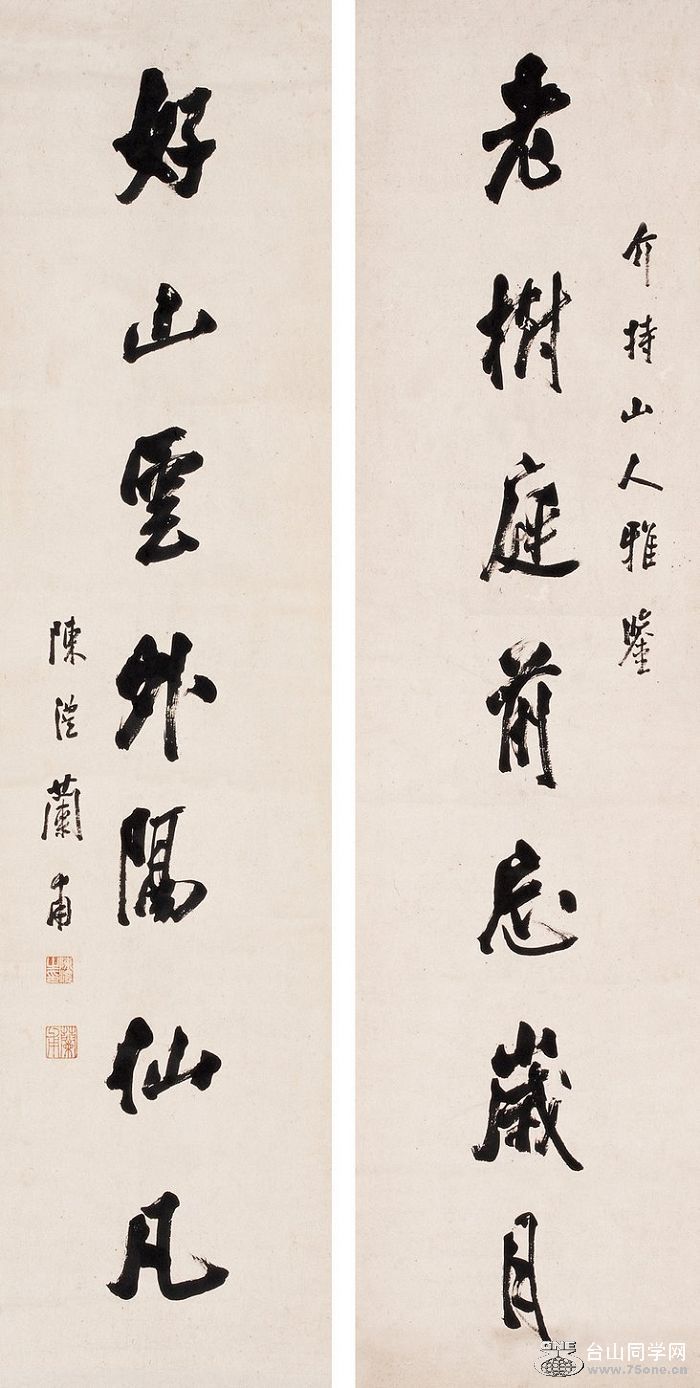 介持山人雅鑒
老樹庭前忘歲月
好山雲外隔仙凡
陳澧蘭甫
蘭甫
ONE
台山同学网
www.75one.cn